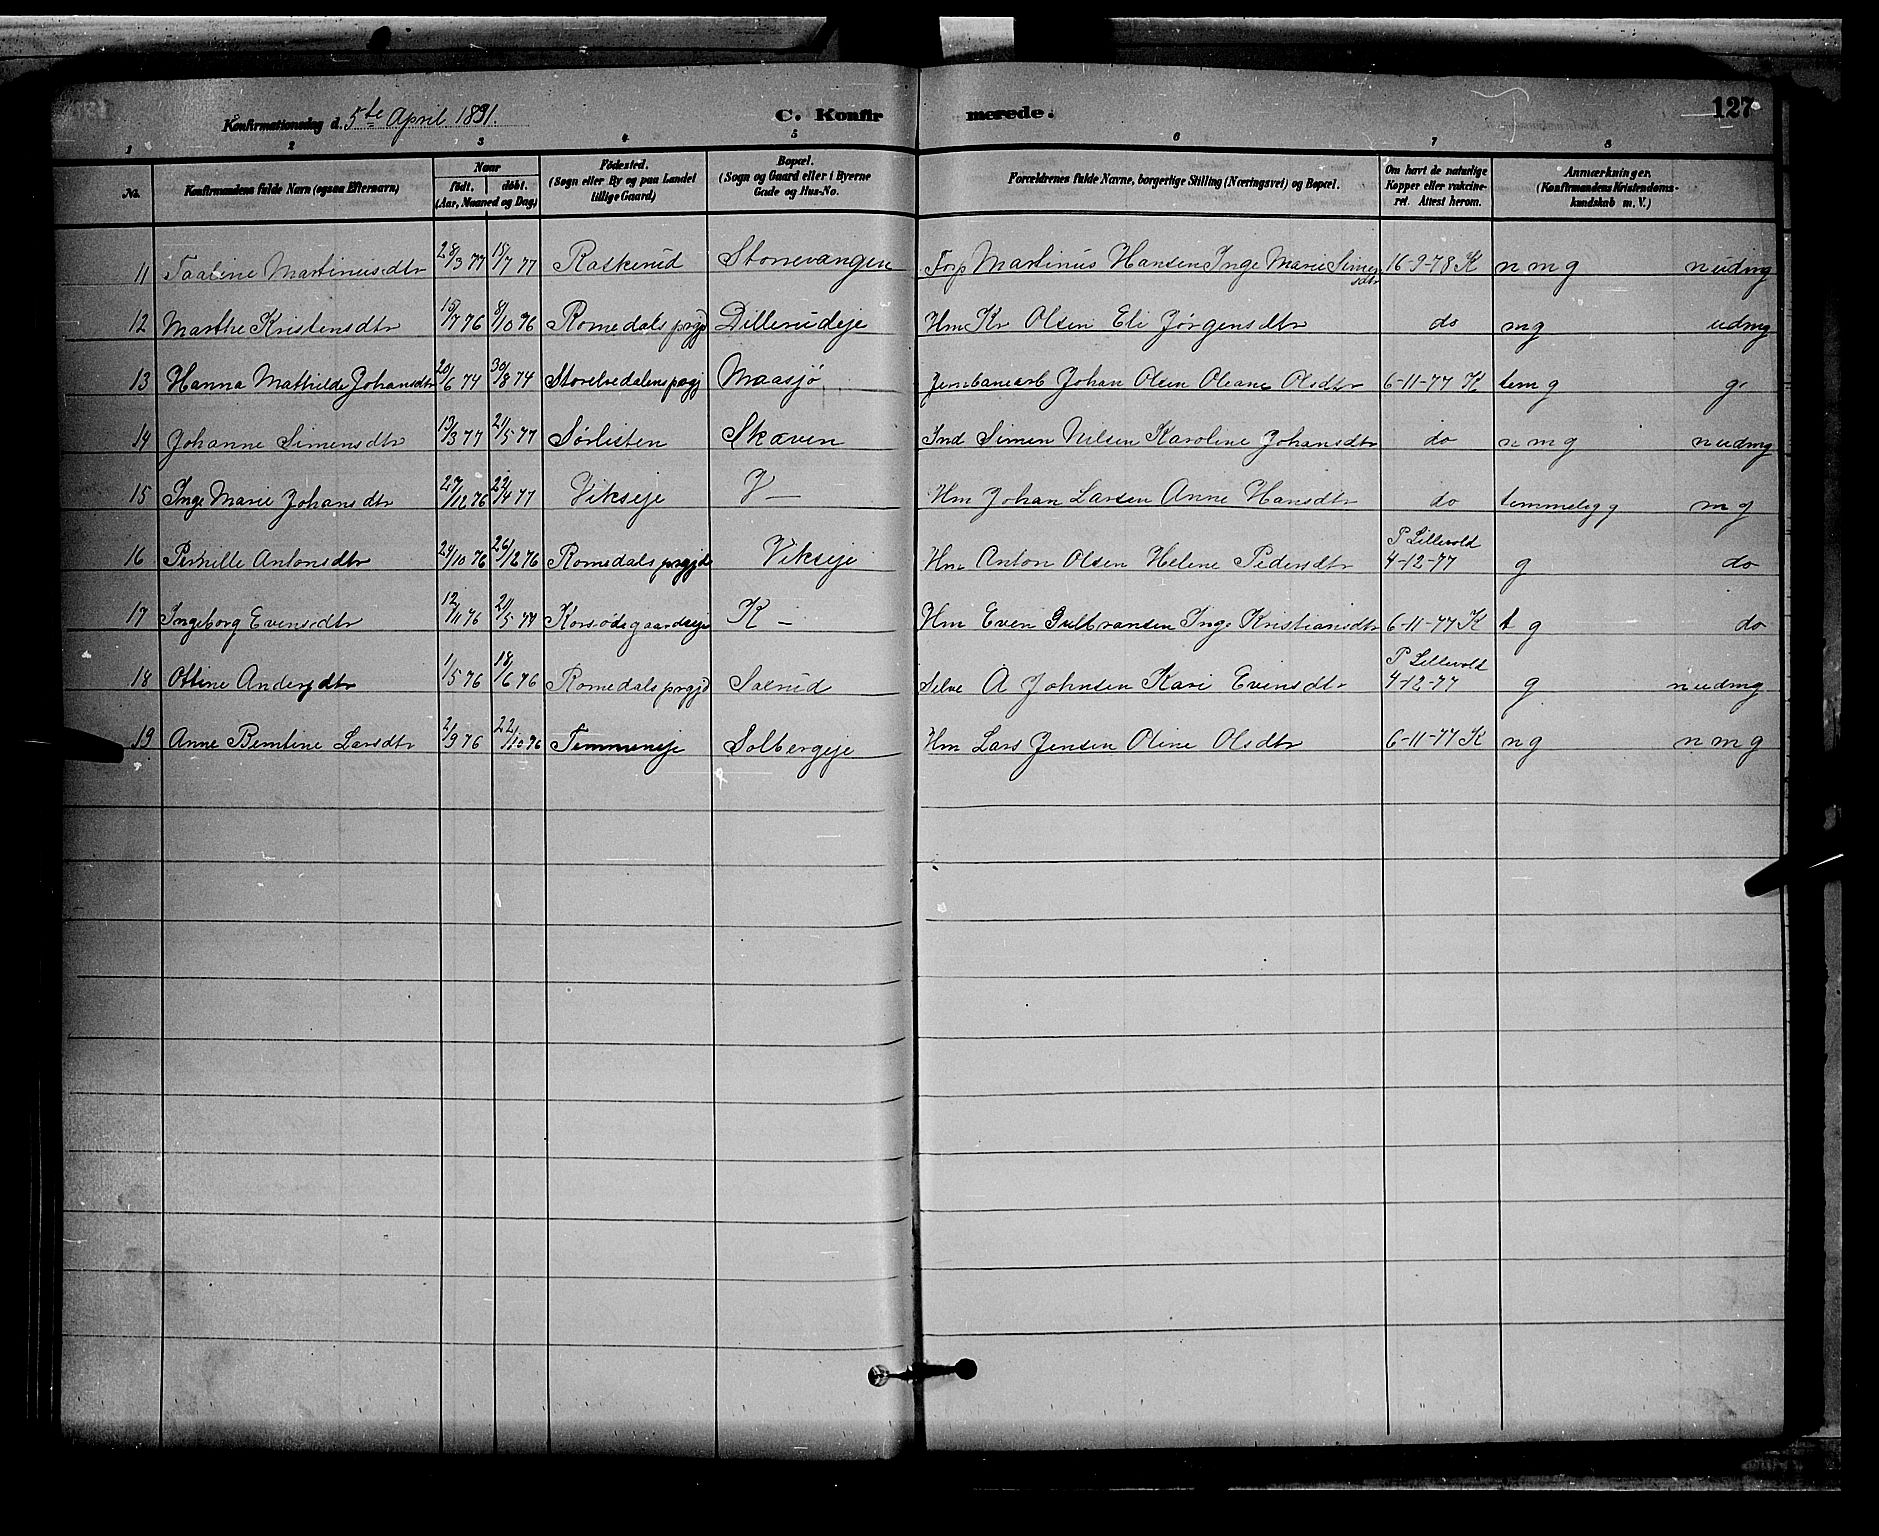 Konfirmationsdag d. 5te April 1891. C. Konfirmerede. 127
1 2 3 4 5 6 7 8
No. Konfirmandens fulde Navn (ogsaa Efternavn) Naar født. døbt. (Aar, Maaned og Dag) Fødested. (Sogn eller By og paa Landet tillige Gaard) Bopæl. (Sogn og Gaard eller i Byerne Gade og Hus-No. Forældrenes fulde Navne, borgerlige Stilling (Næringsvei) og Bopæl. Om havt de naturlige Kopper eller vakcineret. Attest herom. Anmærkninger. (Konfirmandens Kristendomskundskab m. V.)
11 Taaline Martinusdtr 28/3 77 15/7 77 Raskerud Storrevangen Forp Martinus Hansen Inge Marie Simensdtr 16-9-78 K n m g n udmg
12 Marthe Kristensdtr 15/7 76 8/10 76 Romedals prgjd Dillerudeje Hm Kr Olsen Eli Jørgensdtr do mg udmg
13 Hanna Mathilde Johansdtr 20/6 74 30/8 74 Storelvedalens prgj Maasjø Jernbanearb Johan Olsen Oleane Olsdtr 6-11-77 K tem g g
14 Johanne Simensdtr 13/3 77 21/5 77 Sørlisten Skæven Ind Simen Nilsen Karoline Johansdtr do n m g n udmg
15 Inge Marie Johansdtr 27/12 76 22/4 77 Vikseje V — Hm Johan Larsen Anne Hansdtr do temmelig g m g
16 Pernille Antonsdtr 24/10 76 26/12 76 Romedals prgjd Vikseje Hm Anton Olsen Helene Pedersdtr P Lillevold 4-12-77 g do
17 Ingeborg Evensdtr 12/11 76 21/5 77 Korsødegaardseje K — Hm Even Gulbransen Inge Kristiansdtr 6-11-77 K t g do
18 Ottine Andersdtr 1/5 76 18/6 76 Romedals prgjd Solrud Selve A Johnsen Kari Evensdtr P Lillevold 4-12-77 g n udmg
19 Anne Berntine Larsdtr 2/9 76 22/10 76 Temmeneje Solbergeje Hm Lars Jensen Oline Olsdtr 6-11-77 K n g n m g